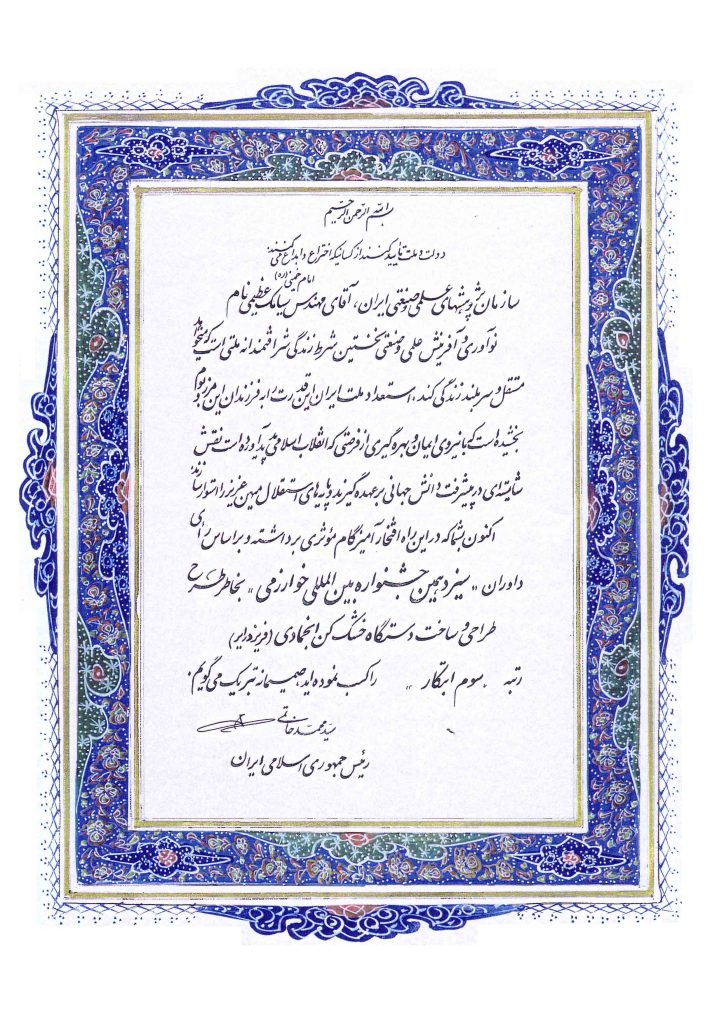 بسم الله الرحمن الرحیم
دولت و ملت تأیید کنند از کسانیکه اختراع و ابداع می‌کنند
امام خمینی (ره)
سازمان پژوهشهای علمی و صنعتی ایران، آقای مهندس سیامک عظیمی نام
نوآوری و آفرینش علمی و صنعتی نخستین شرط زندگی شرافتمندانه ملتی است که میخواهد
مستقل و سربلند زندگی کند. استعداد ملت ایران این قدرت را به فرزندان این مرز و بوم
بخشیده است که با نیروی ایمان و بهره گیری از فرصتی که انقلاب اسلامی پدید آورده است نقش
شایسته ای در پیشرفت دانش جهانی بر عهده گیرند و پایه های استقلال میهن عزیز را استوار سازند.
اکنون شما که در این راه افتخارآمیز گام مؤثری برداشته و بر اساس رأی
داوران "سیزدهمین جشنواره بین المللی خوارزمی" بخاطر طرح
طراحی و ساخت دستگاه خشک کن انجمادی (فریزدرایر)
رتبه "سوم ابتکار" را کسب نموده اید، صمیمانه تبریک می گویم.
سید محمد خاتمی
رئیس جمهوری اسلامی ایران